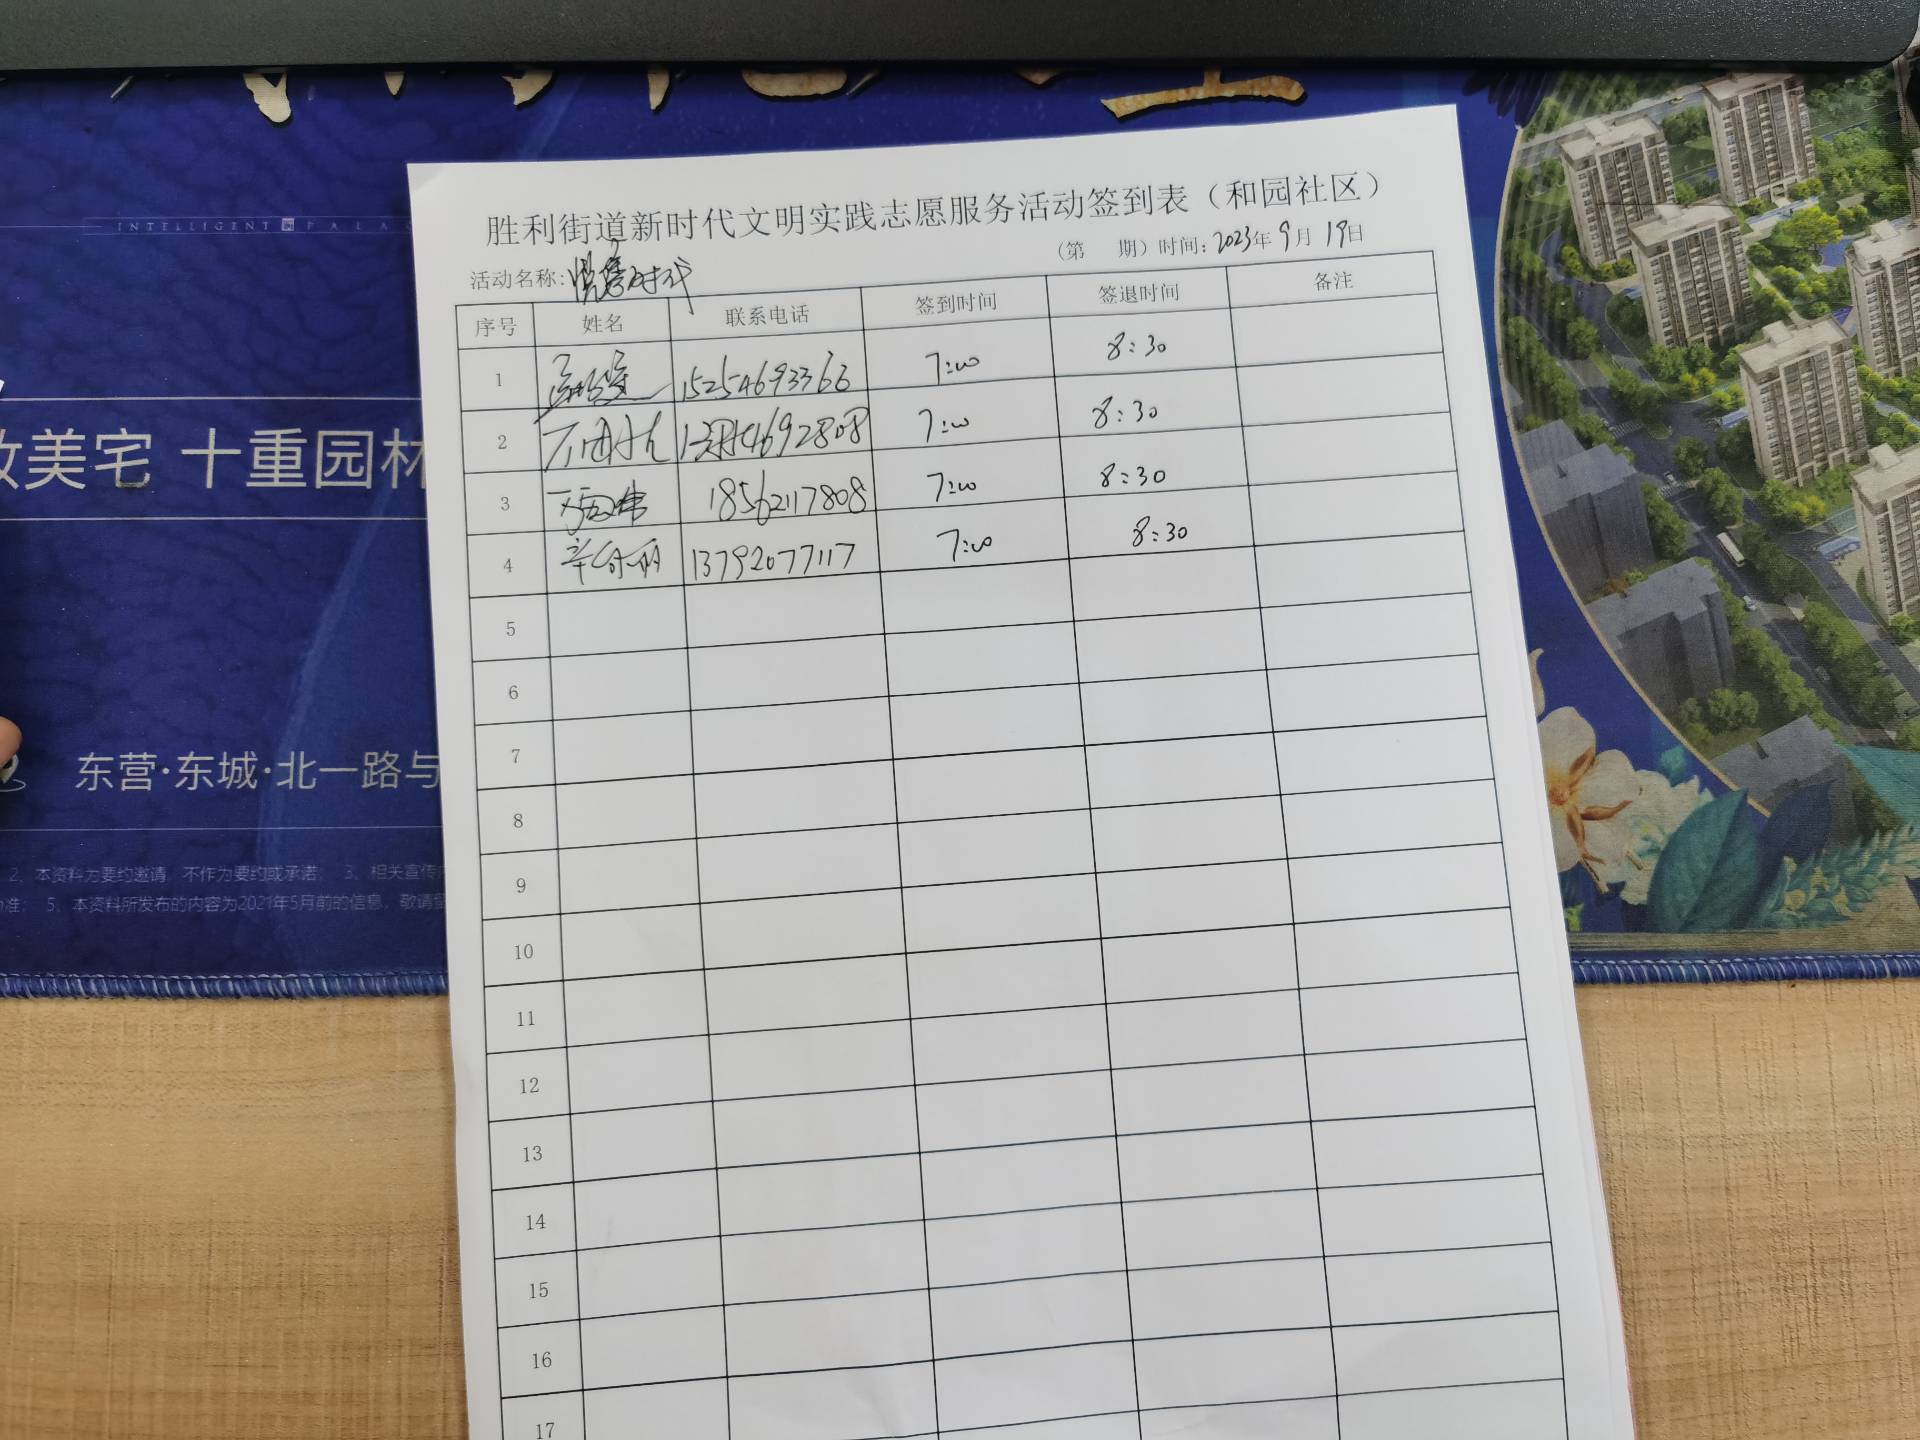 INTELLIGENT PALAC
胜利街道新时代文明实践志愿服务活动签到表（和园社区）
（第 期）时间：2023年9月19日
活动名称： 时代
序号 姓名 联系电话 签到时间 签退时间 备注
1 15254693363 7:00 8:30
2 4692808 7:00 8:30
3 18562117808 7:00 8:30
4 13792077117 7:00 8:30
5
6
7
8
9
10
11
12
13
14
15
16
17
美宅 十重园林
东营·东城·北一路与
2、本资料为要约邀请，不作为要约或承诺； 3、相关宣传
准； 5、本资料所发布的内容为2021年5月前的信息，敬请